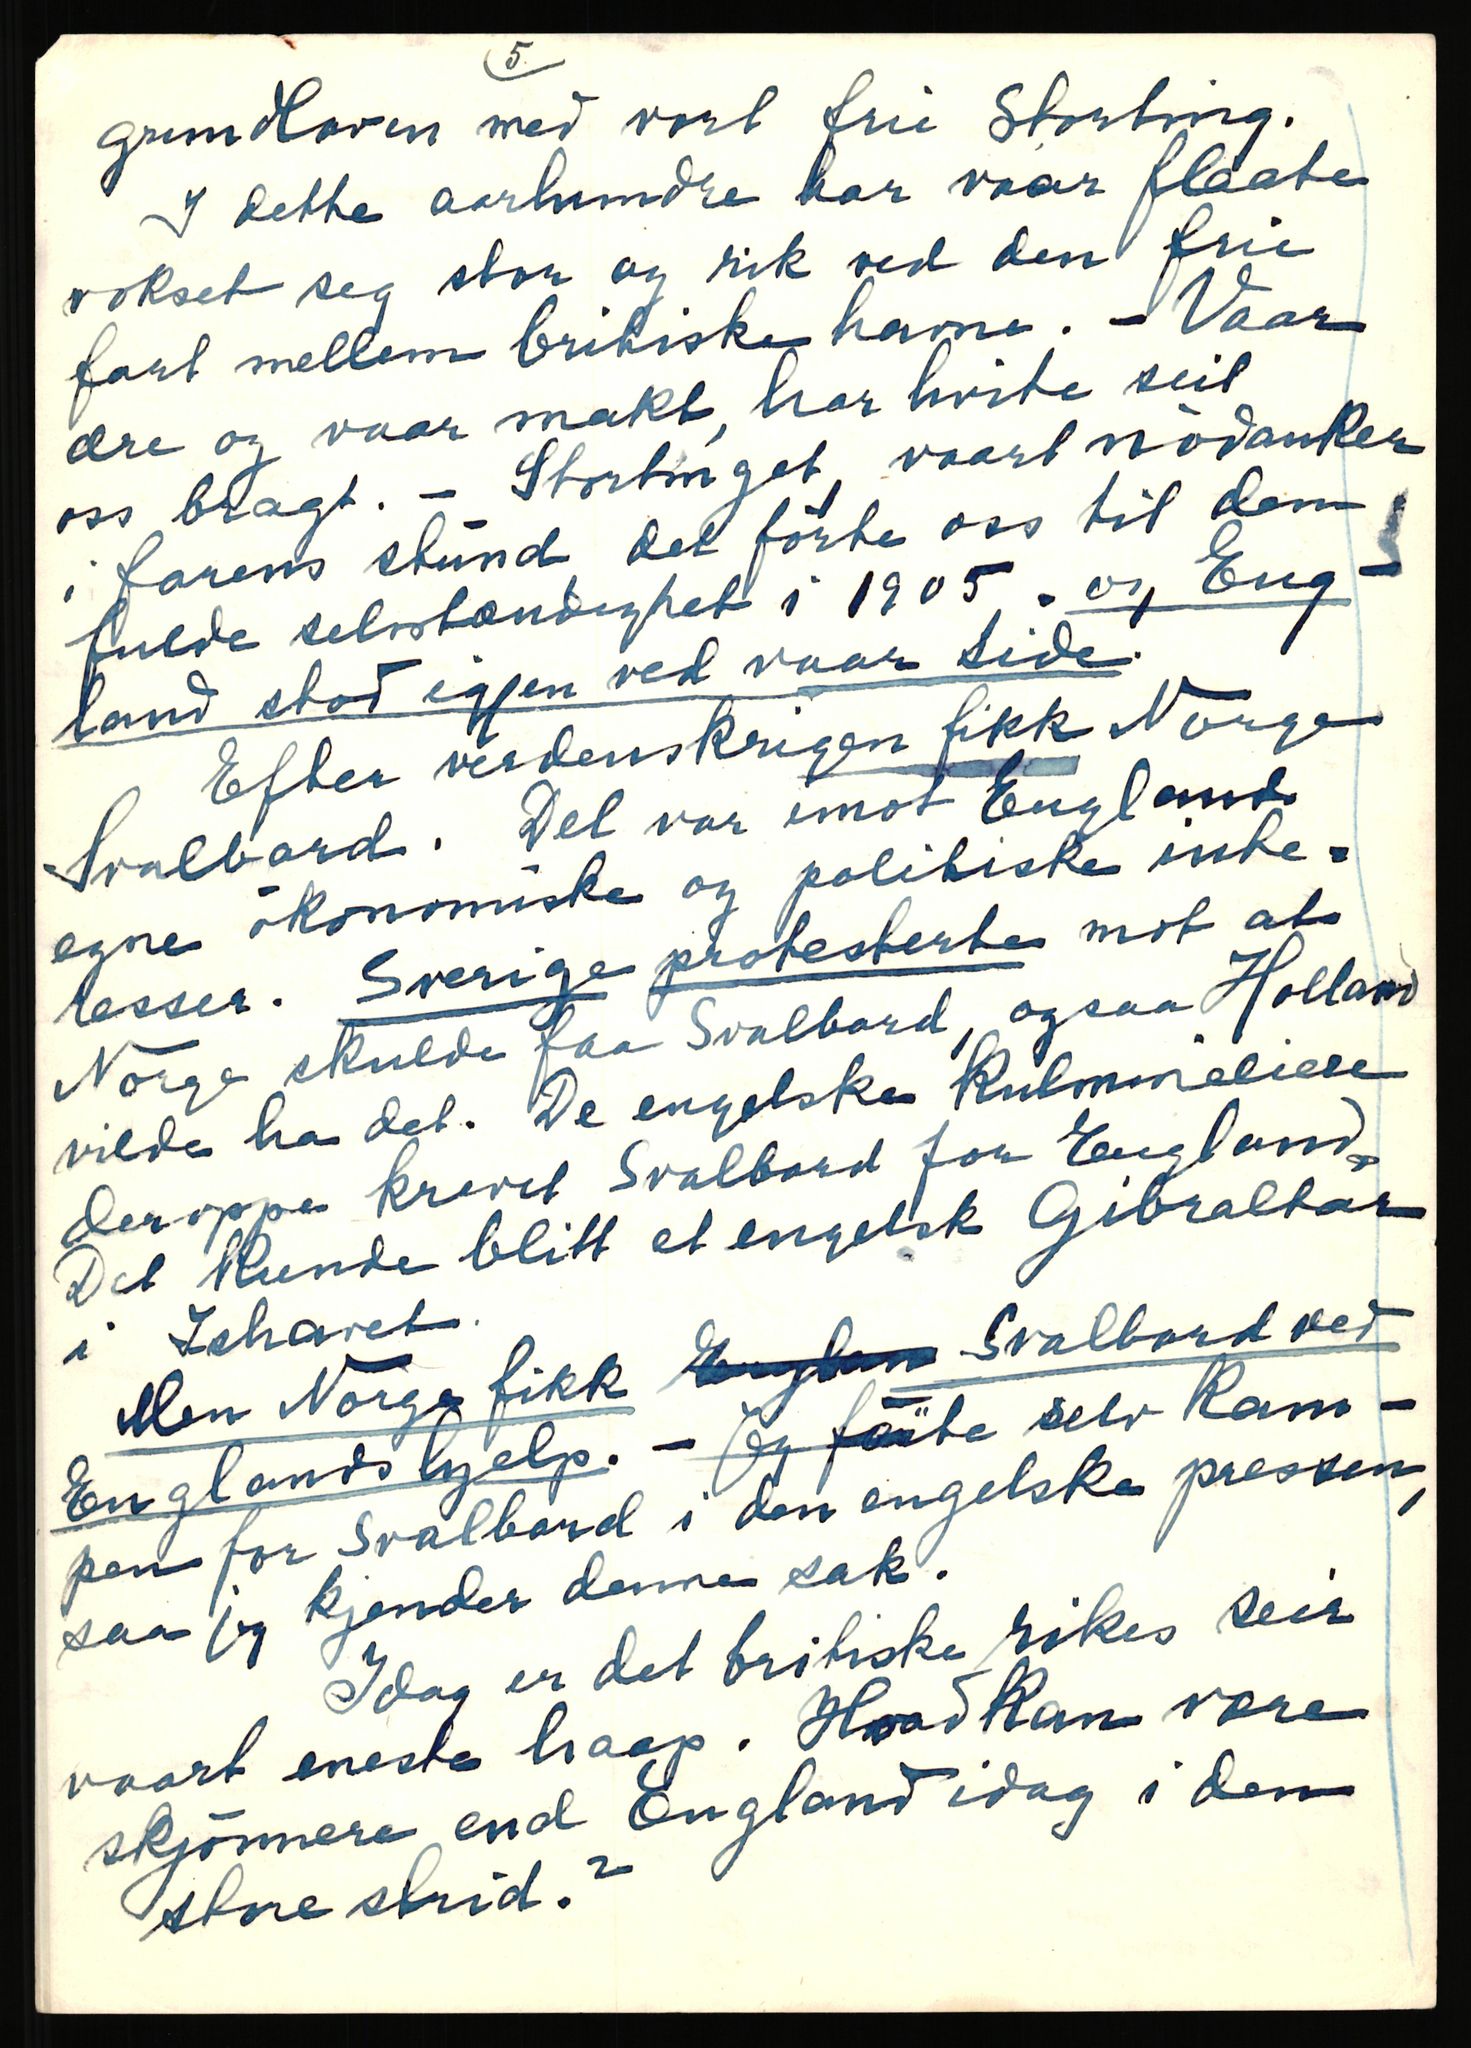 5.
grundloven med vort frie Storting.
I dette aarhundre har vaar flaate
vokset seg stor og rik ved den frie
fart mellem britiske havne. – Vaar
ære og vaar makt, har hvite seil
oss bragt. – Stortinget, vaart nödanker
i farens stund det förte oss til den
fulde selvstændighet i 1905. og Eng-
land stod igjen ved vaar side.
Efter verdenskrigen fikk Norge
Svalbard. Det var imot Englands
egne ökonomiske og politiske inte-
resser. Sverige protesterte mot at
Norge skulde faa Svalbard, ogsaa Holland
vilde ha det. De engelske kulmineiere
deroppe krevet Svalbard for England.
Det kunde blitt et engelsk Gibraltar
i Ishavet.
Men Norge fikk Svalbard ved
Englands hjelp. – Jeg förte selv kam-
pen for Svalbard i den engelske pressen,
saa jeg kjender denne sak.
Idag er det britiske rikes seir
vaart eneste haap. Hvad kan være
skjönnere end England idag i den
store strid.?